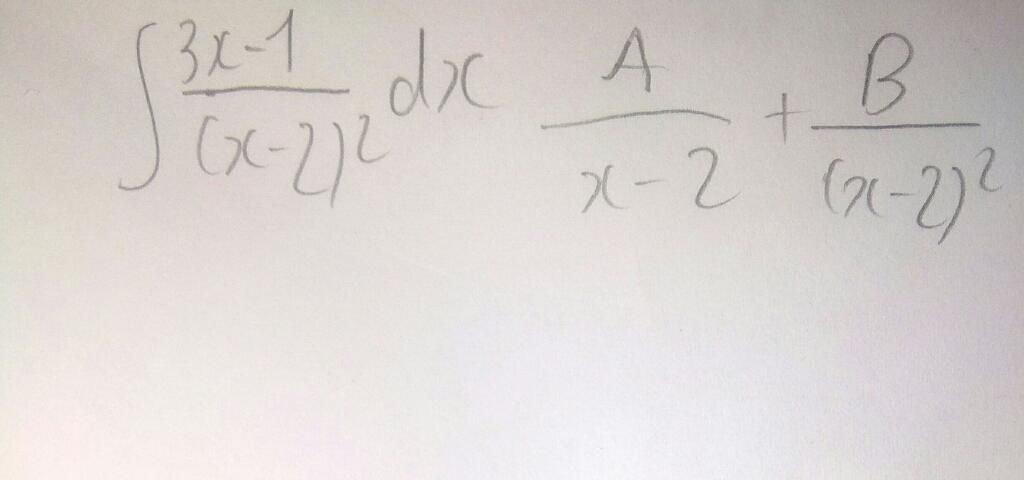 ∫ (3x-1)/(x-2)² dx   A/(x-2) + B/(x-2)²